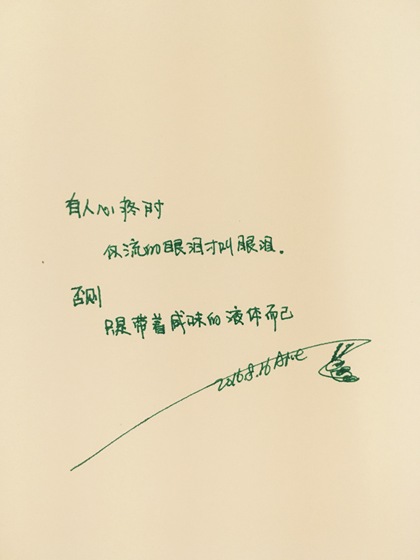 有人心疼时
你流的眼泪才叫眼泪。
否则
只是带着咸味的液体而已
2016.8.16